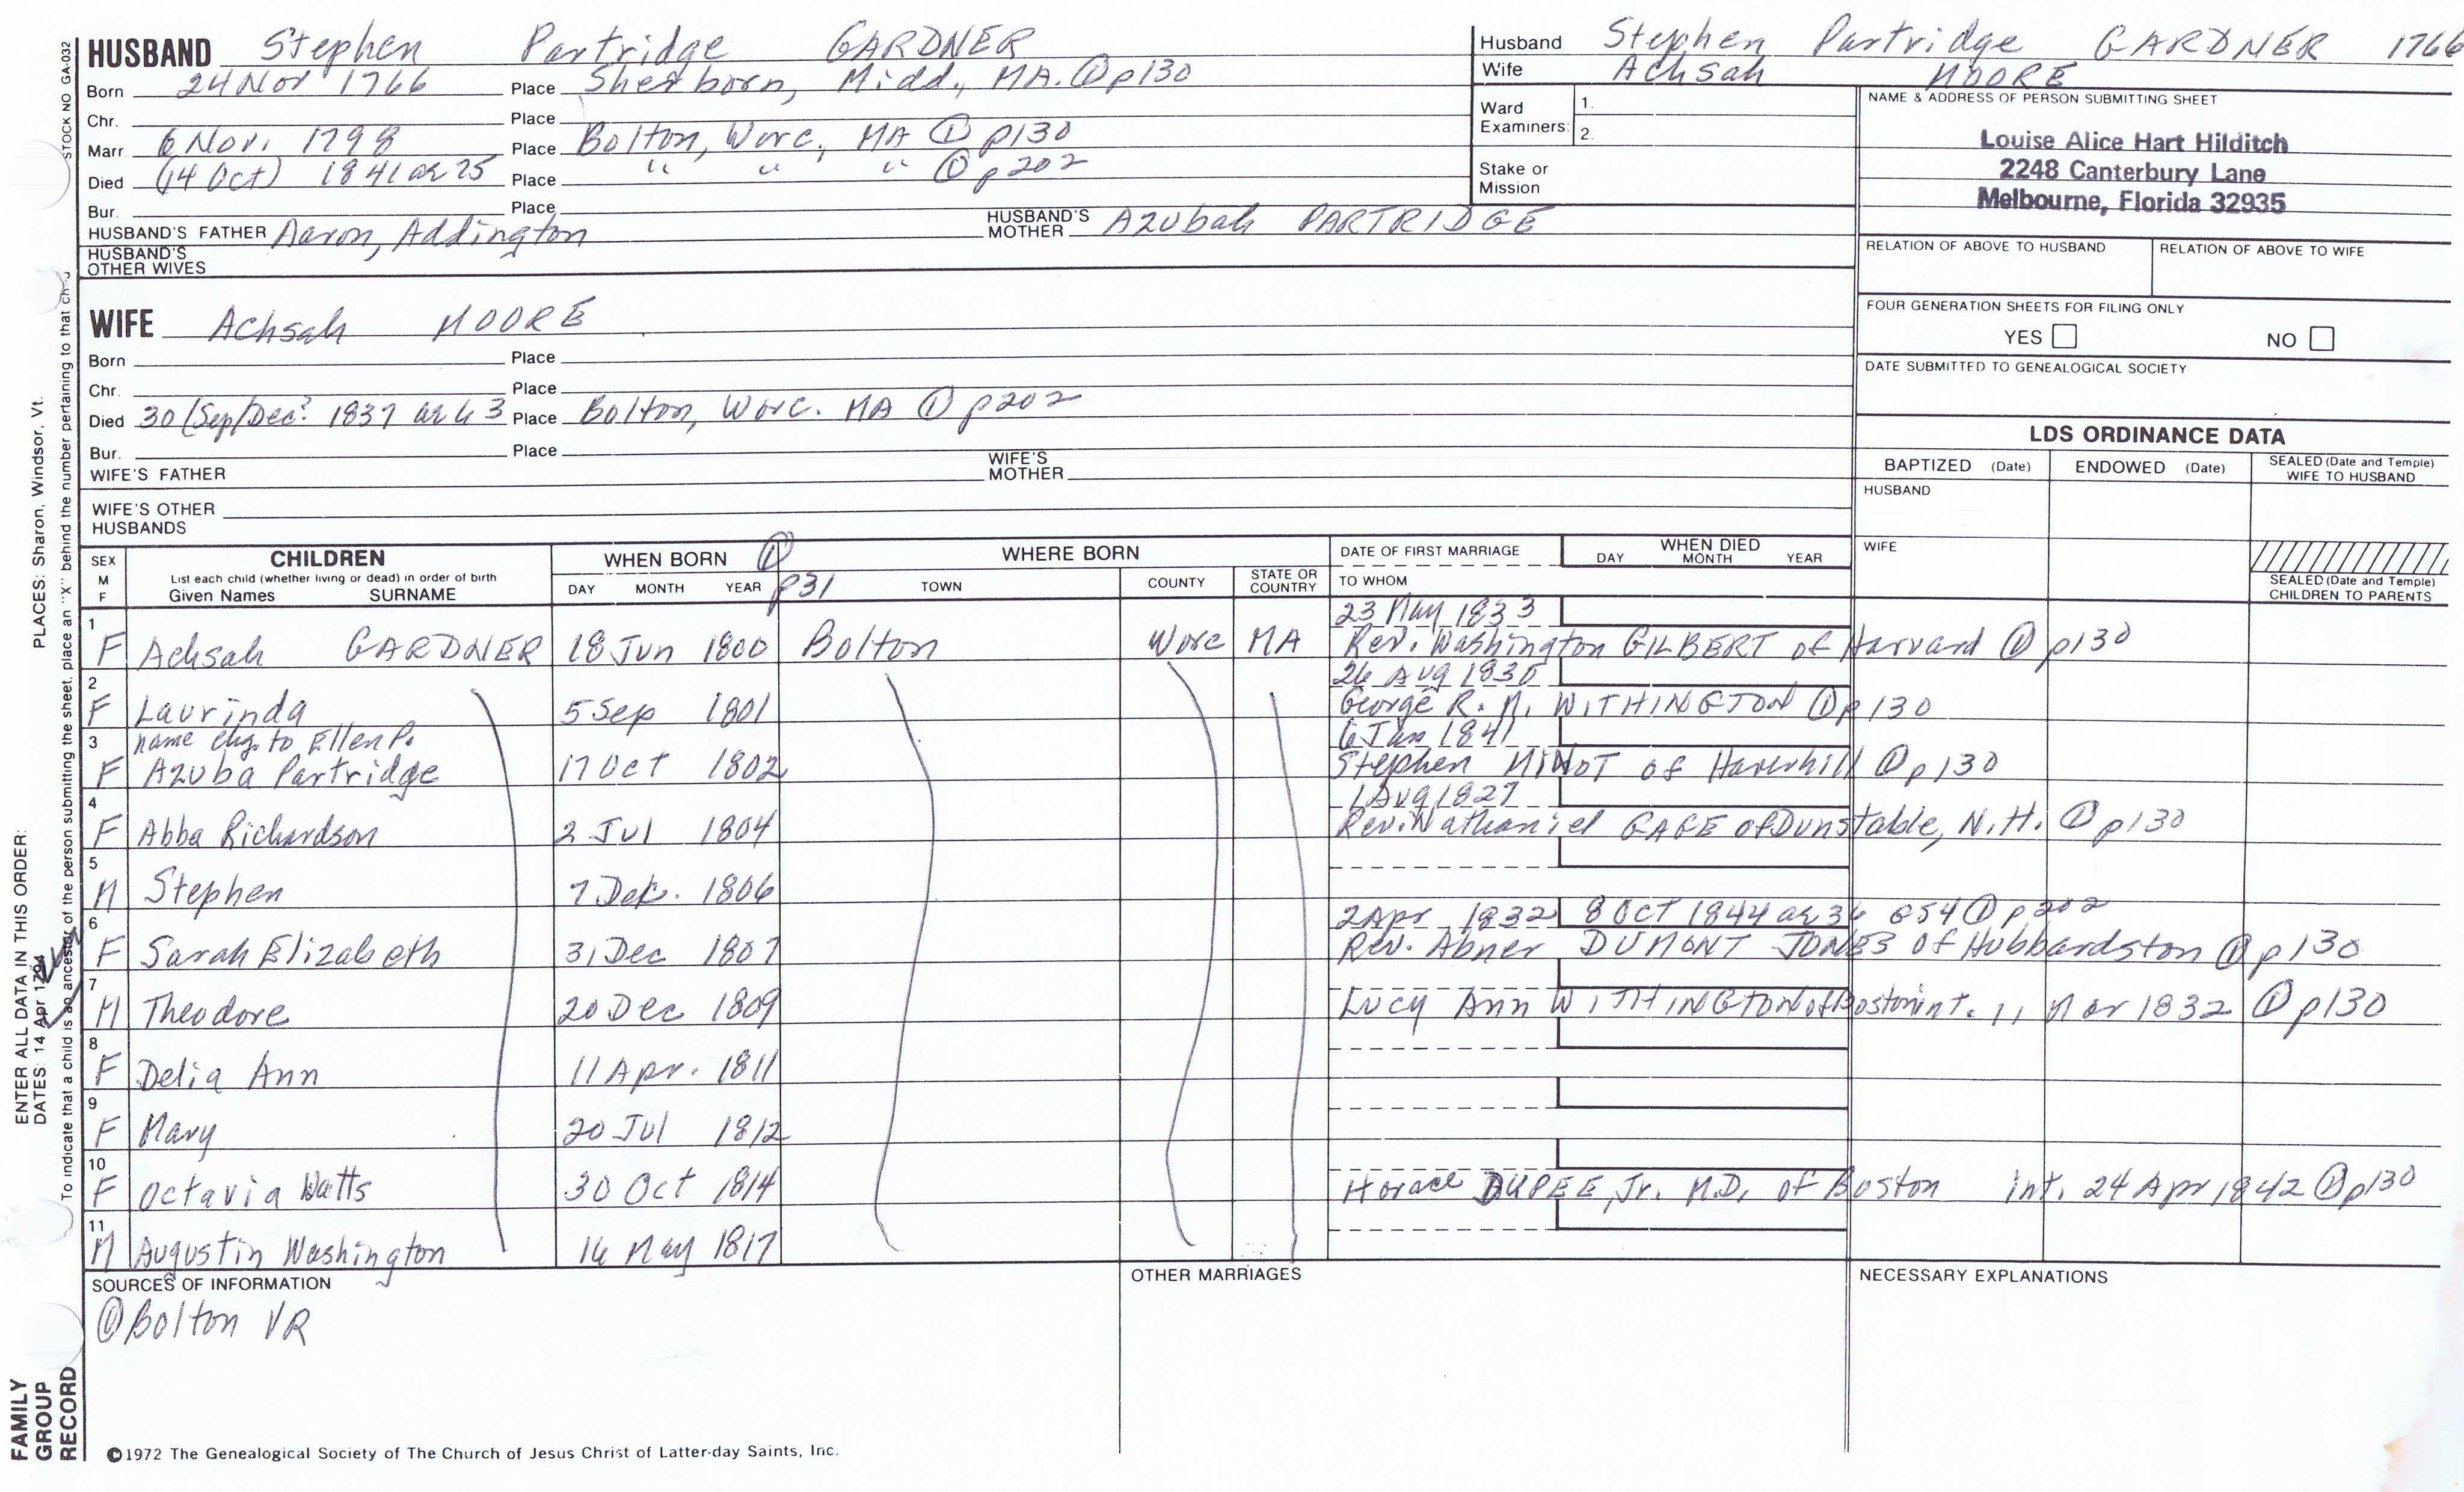 HUSBAND Stephen Partridge GARDNER
Born 24 Nov 1766 Place Sherborn, Midd., MA. ① p130
Chr. Place
Marr. 6 Nov. 1798 Place Bolton, Worc., MA ① p130
Died (14 Oct) 1841 ae 75 Place " " " ① p202
Bur. Place
HUSBAND'S FATHER Aaron, Addington HUSBAND'S MOTHER Azubah PARTRIDGE
HUSBAND'S OTHER WIVES
Husband Stephen Partridge GARDNER 1766
Wife Achsah MOORE
Ward Examiners: 1.
2.
Stake or Mission
NAME & ADDRESS OF PERSON SUBMITTING SHEET
Louise Alice Hart Hilditch
2248 Canterbury Lane
Melbourne, Florida 32935
RELATION OF ABOVE TO HUSBAND RELATION OF ABOVE TO WIFE
FOUR GENERATION SHEETS FOR FILING ONLY
YES NO
DATE SUBMITTED TO GENEALOGICAL SOCIETY
WIFE Achsah MOORE
Born Place
Chr. Place
Died 30 (Sep/Dec? 1837 ae 63 Place Bolton, Worc. MA ① p202
Bur. Place
WIFE'S FATHER WIFE'S MOTHER
WIFE'S OTHER HUSBANDS
LDS ORDINANCE DATA
BAPTIZED (Date) ENDOWED (Date) SEALED (Date and Temple) WIFE TO HUSBAND
HUSBAND
WIFE
SEALED (Date and Temple) CHILDREN TO PARENTS
SEX M F CHILDREN WHEN BORN ① p31 WHERE BORN DATE OF FIRST MARRIAGE WHEN DIED
List each child (whether living or dead) in order of birth DAY MONTH YEAR
Given Names SURNAME DAY MONTH YEAR TOWN COUNTY STATE OR COUNTRY TO WHOM
23 May 1833
1 F Achsah GARDNER 18 Jun 1800 Bolton Worc MA Rev. Washington GILBERT of Harvard ① p130
26 Aug 1830
2 F Laurinda 5 Sep 1801 George R. M. WITHINGTON ① p130
name chg. to Ellen P. 6 Jan 1841
3 F Azuba Partridge 17 Oct 1802 Stephen MINOT of Haverhill ① p130
1 Aug 1827
4 F Abba Richardson 2 Jul 1804 Rev. Nathaniel GAGE of Dunstable, N.H. ① p130
5 M Stephen 7 Dec. 1806
2 Apr 1832 8 OCT 1844 ae 36 GS4 ① p202
6 F Sarah Elizabeth 31 Dec 1807 Rev. Abner DUMONT JONES of Hubbardston ① p130
7 M Theodore 20 Dec 1809 Lucy Ann WITHINGTON of Boston int. 11 Mar 1832 ① p130
8 F Delia Ann 11 Apr. 1811
9 F Mary 20 Jul 1812
10 F Octavia Watts 30 Oct 1814 Horace DUPEE, Jr. M.D. of Boston int. 24 Apr 1842 ① p130
11 M Augustin Washington 16 May 1817
SOURCES OF INFORMATION OTHER MARRIAGES NECESSARY EXPLANATIONS
① Bolton VR
©1972 The Genealogical Society of The Church of Jesus Christ of Latter-day Saints, Inc.
STOCK NO GA-032
FAMILY GROUP RECORD
ENTER ALL DATA IN THIS ORDER:
DATES: 14 Apr 1794
PLACES: Sharon, Windsor, Vt.
To indicate that a child is an ancestor of the person submitting the sheet, place an "X" behind the number pertaining to that